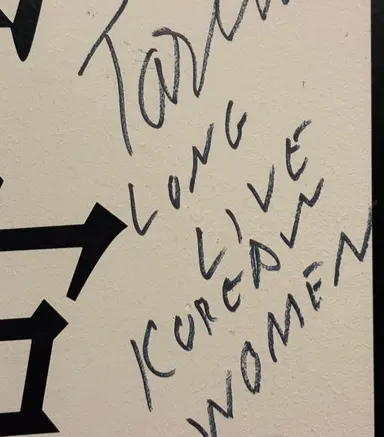 LONG
LIVE
KOREAN
WOMEN